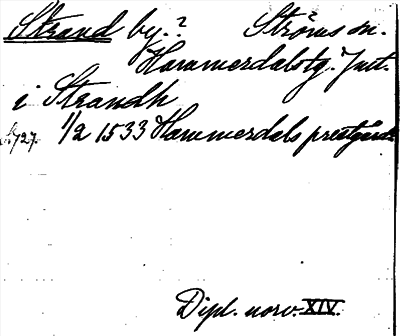 Strand by.? Ströms sn.
Hammerdals tg. Jmtl.
i Strandh
1/2 1533 Hammerdals prestgård
s. 727.
Dipl. norv. XIV.